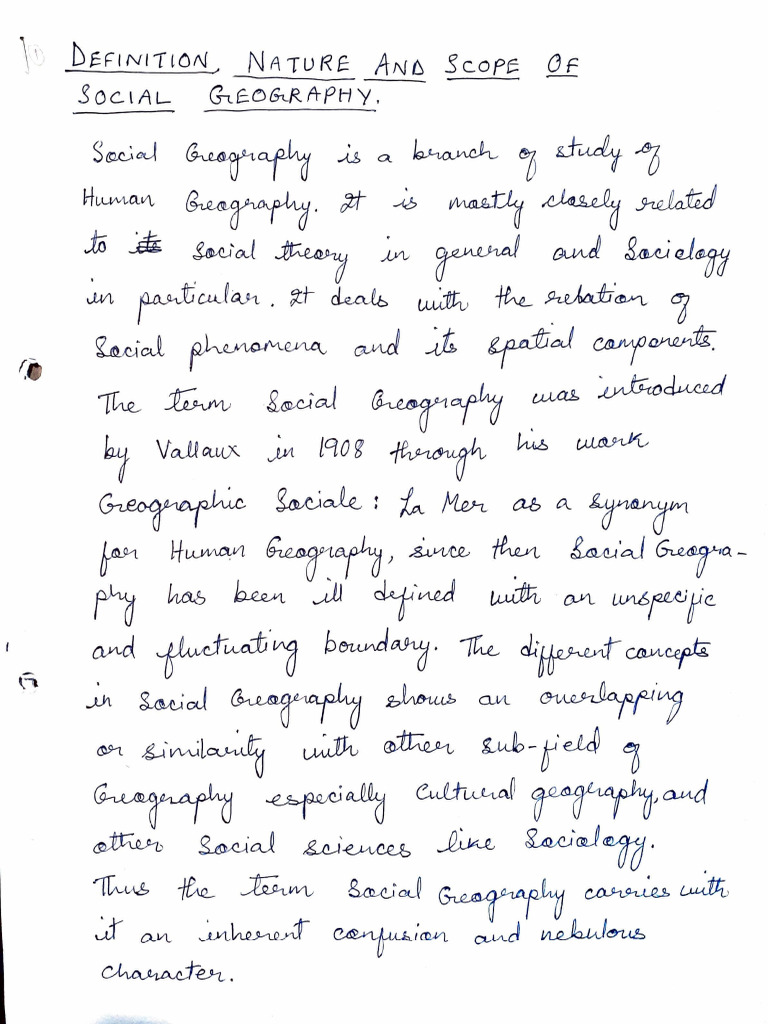 DEFINITION, NATURE AND SCOPE OF
SOCIAL GEOGRAPHY.
Social Geography is a branch of study of
Human Geography. It is mostly closely related
to its social theory in general and Sociology
in particular. It deals with the relation of
Social phenomena and its spatial components.
The term Social Geography was introduced
by Vallaux in 1908 through his work
Geographic Sociale : La Mer as a synonym
for Human Geography, since then Social Geogra-
phy has been ill defined with an unspecific
and fluctuating boundary. The different concepts
in Social Geography shows an overlapping
or similarity with other sub-field of
Geography especially Cultural geography, and
other Social sciences like Sociology.
Thus the term Social Geography carries with
it an inherent confusion and nebulous
character.